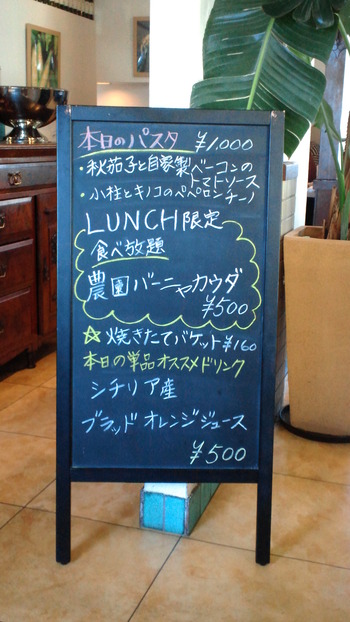 本日のパスタ ¥1,000
・秋茄子と自家製ベーコンの
トマトソース
・小柱とキノコのペペロンチーノ
LUNCH限定
食べ放題
農園バーニャカウダ
¥500
☆焼きたてバケット¥160
本日の単品オススメドリンク
シチリア産
ブラッドオレンジジュース
¥500